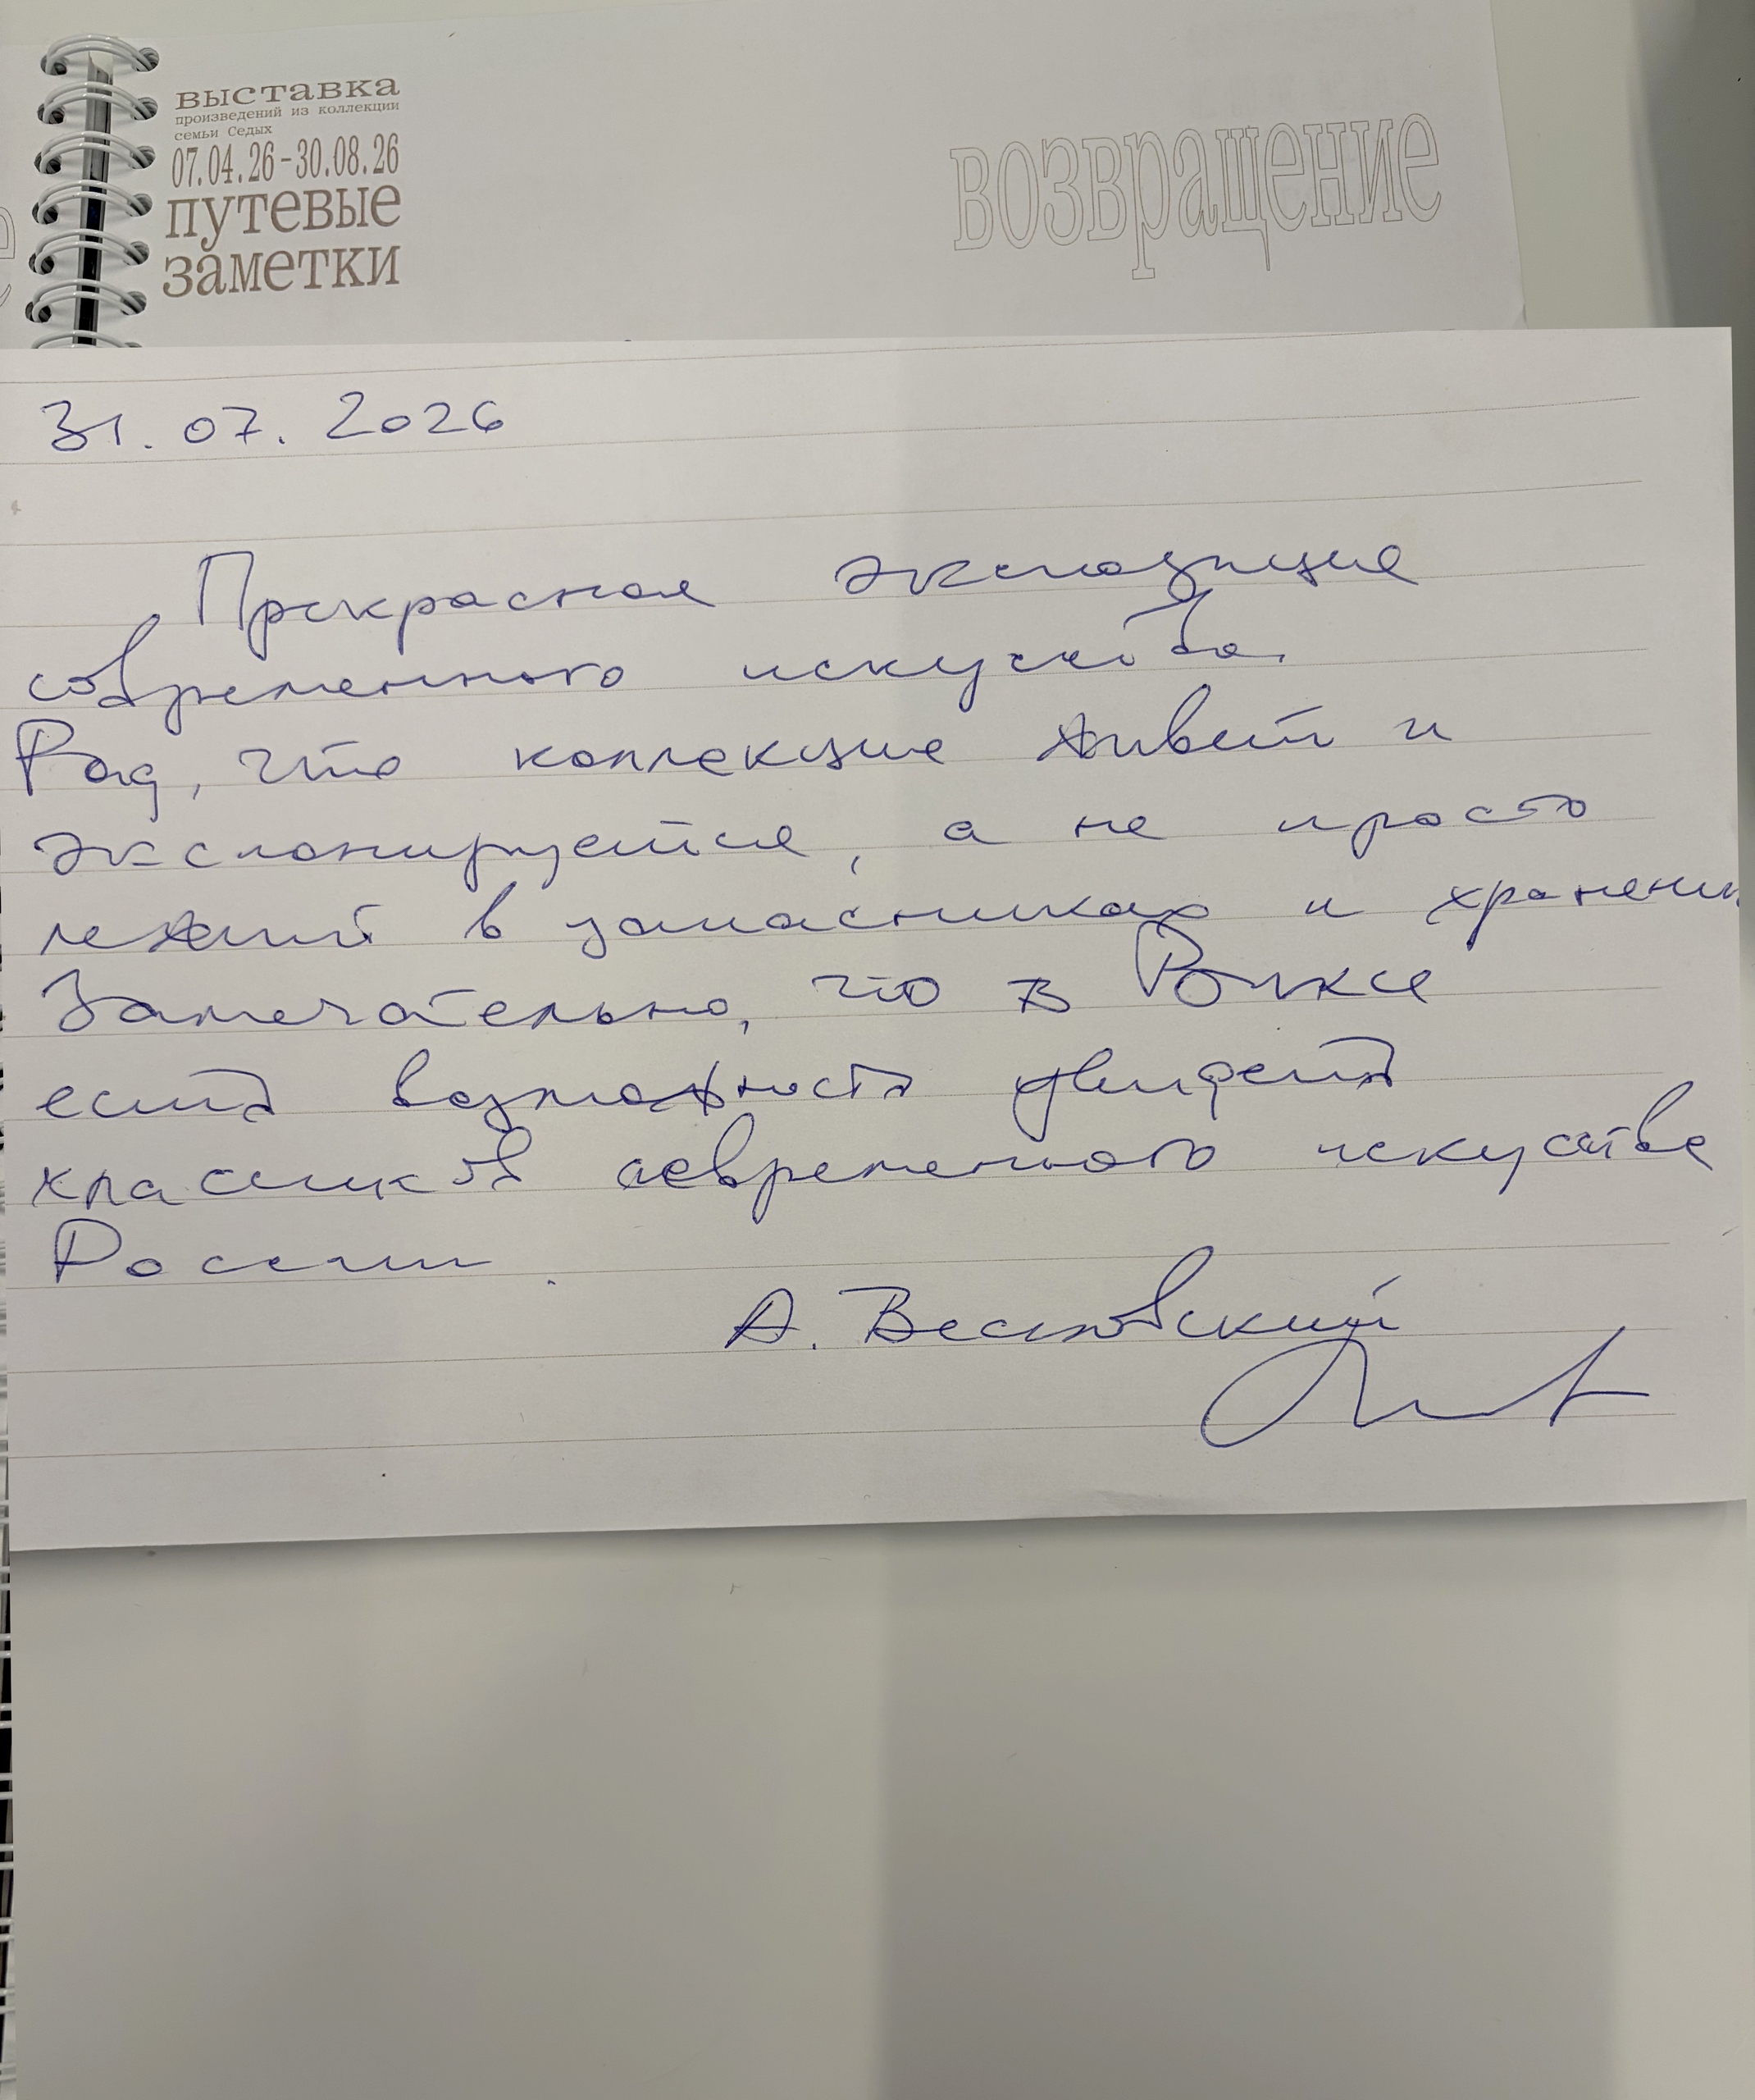 выставка
произведений из коллекции
семьи Седых
07.04.26-30.08.26
путевые
заметки
возвращение
31.07.2026
Прекрасная экспозиция
современного искусства.
Рад, что коллекция живёт и
экспонируется, а не просто
лежит в запасниках и хранени
Замечательно, что в Выксе
есть возможность увидеть
классиков современного искуства
России.
А. Весковский